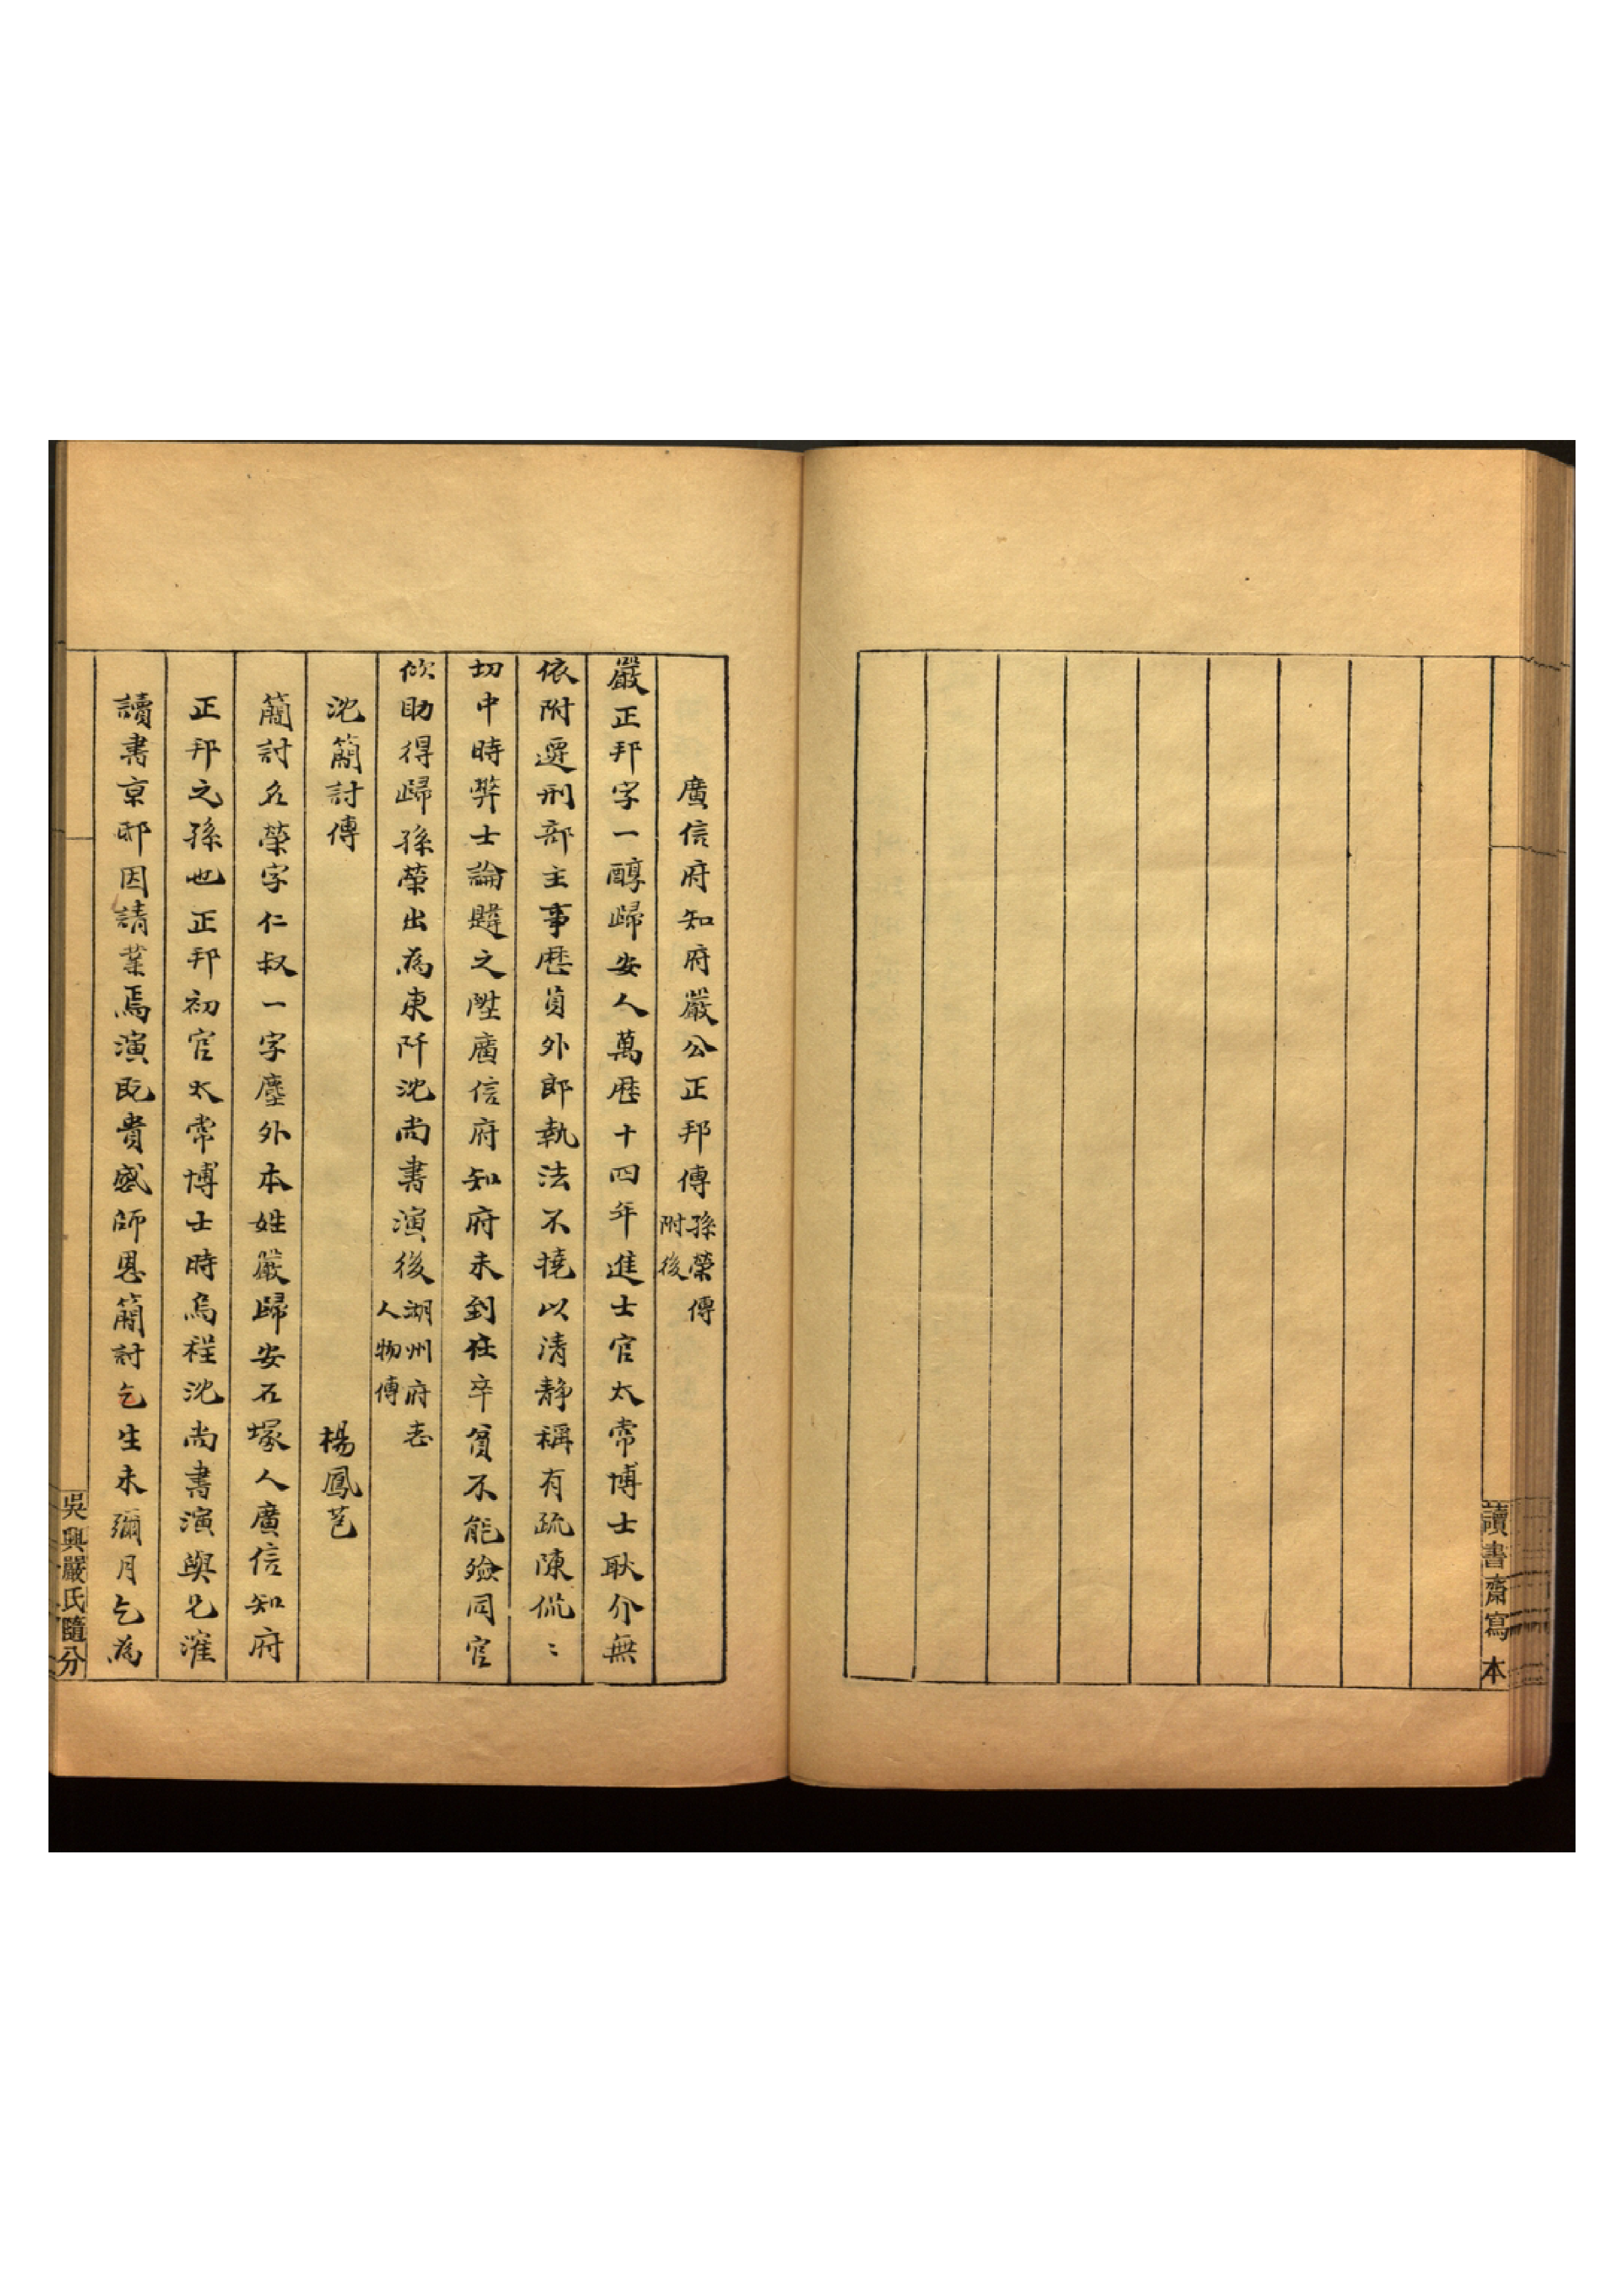 讀書齋寫本
廣信府知府嚴公正邦傳孫榮傳附後
嚴正邦字一醇歸安人萬歷十四年進士官太常博士耿介無
依附遷刑部主事歷員外郎執法不撓以清靜稱有疏陳侃〻
切中時弊士論韙之陞廣信府知府未到任卒貧不能殮同官
佽助得歸孫榮出為東阡沈尚書演後湖州府志人物傳
沈簡討傳 楊鳳苞
簡討名榮字仁叔一字塵外本姓嚴歸安石塚人廣信知府
正邦之孫也正邦初官太常博士時烏程沈尚書演與兄㴶
讀書京邸因請業焉演既貴感師恩簡討乞生未彌月乞為
吳興嚴氏隨分